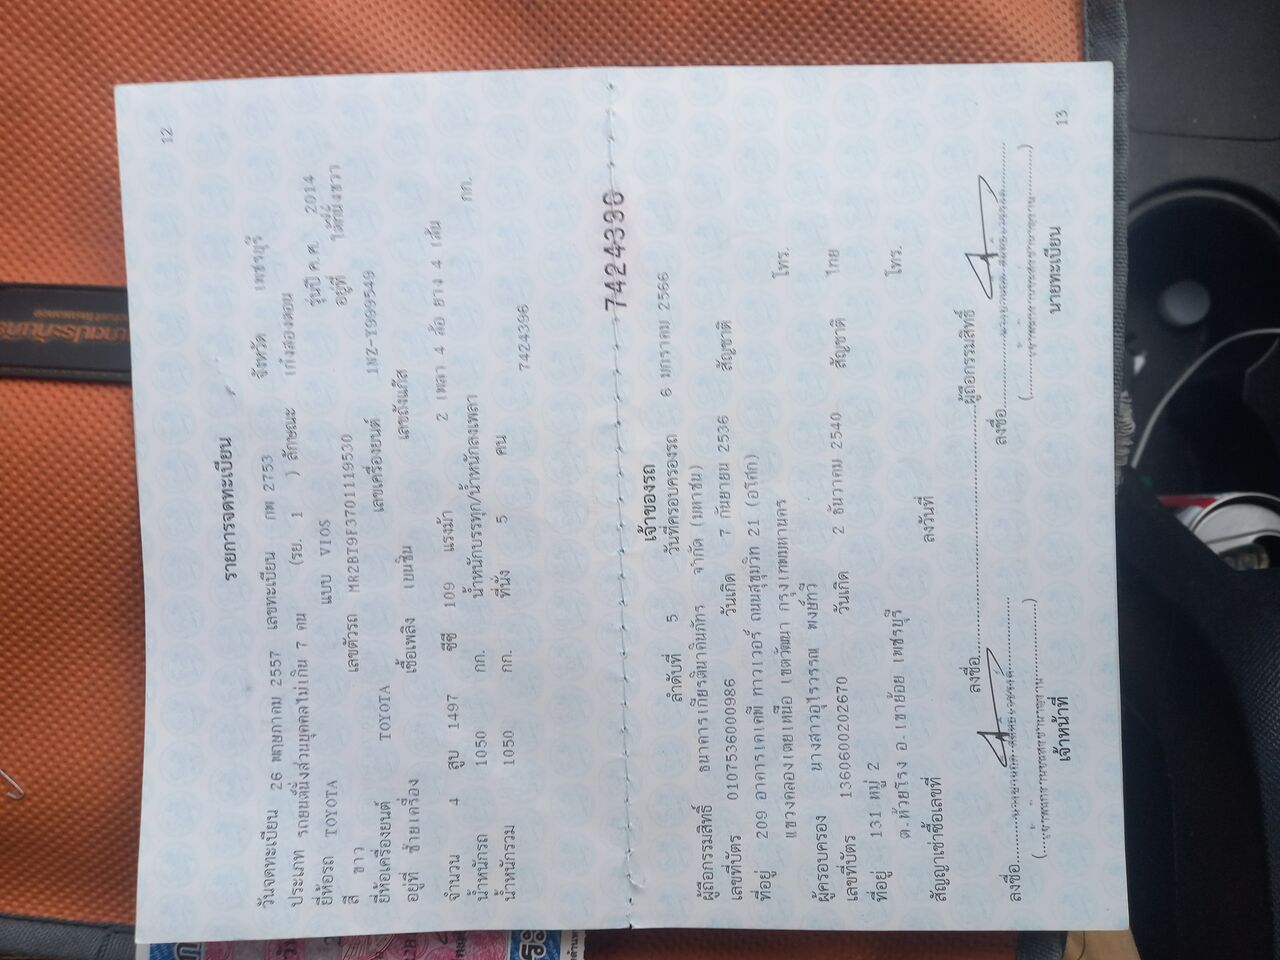 12
รายการจดทะเบียน
วันจดทะเบียน 26 พฤษภาคม 2557 เลขทะเบียน กพ 2753 จังหวัด เพชรบุรี
ประเภท รถยนต์นั่งส่วนบุคคลไม่เกิน 7 คน (รย. 1 ) ลักษณะ เก๋งสองตอน
ยี่ห้อรถ TOYOTA แบบ VIOS รุ่นปี ค.ศ. 2014
สี ขาว เลขตัวรถ MR2BT9F3701119530 อยู่ที่ ใต้ที่นั่งขวา
ยี่ห้อเครื่องยนต์ TOYOTA เลขเครื่องยนต์ 1NZ-Y999549
อยู่ที่ ซ้ายเครื่อง เชื้อเพลิง เบนซิน เลขถังแก๊ส
จำนวน 4 สูบ 1497 ซีซี 109 แรงม้า 2 เพลา 4 ล้อ ยาง 4 เส้น
น้ำหนักรถ 1050 กก. น้ำหนักบรรทุก/น้ำหนักลงเพลา กก.
น้ำหนักรวม 1050 กก. ที่นั่ง 5 คน
7424396
7424396
เจ้าของรถ
ลำดับที่ 5 วันที่ครอบครองรถ 6 มกราคม 2566
ผู้ถือกรรมสิทธิ์ ธนาคารเกียรตินาคินภัทร จำกัด (มหาชน)
เลขที่บัตร 0107536000986 วันเกิด 7 กันยายน 2536 สัญชาติ
ที่อยู่ 209 อาคารเคเคพี ทาวเวอร์ ถนนสุขุมวิท 21 (อโศก)
แขวงคลองเตยเหนือ เขตวัฒนา กรุงเทพมหานคร โทร.
ผู้ครอบครอง นางสาวอุไรวรรณ พงษ์ทวี
เลขที่บัตร 1360600202670 วันเกิด 2 ธันวาคม 2540 สัญชาติ ไทย
ที่อยู่ 131 หมู่ 2
ต.ห้วยโรง อ.เขาย้อย เพชรบุรี โทร.
สัญญาเช่าซื้อเลขที่ ลงวันที่
ลงชื่อ ผู้ถือกรรมสิทธิ์
ลงชื่อ ลงชื่อ
เจ้าหน้าที่ นายทะเบียน
13